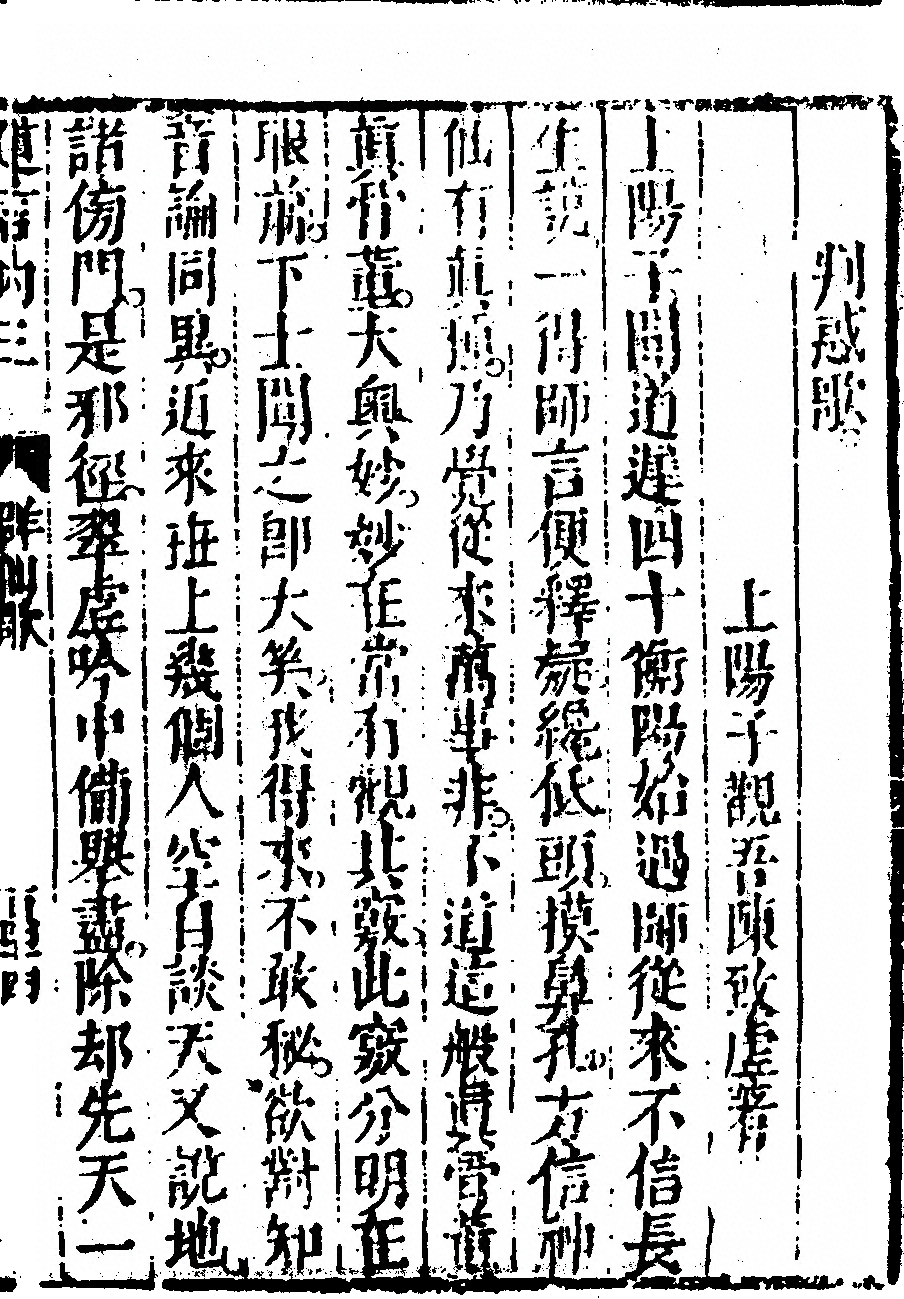 判惑歌
上陽子觀吾陳致虛著
上陽子聞道遲四十衡陽始遇師從來不信長
生說一得師言便釋疑纔低頭摸鼻孔方信神
仙有真種乃覺從來萬事非不道這般真骨董
真骨董大奧妙妙在常有觀其竅此竅分明在
眼前下士聞之即大笑我得來不敢秘欲對知
音論同異近來世上幾個人空自談天又說地
諸傍門是邪徑翠虛吟中備舉盡除却先天一
道言內三 群仙歌